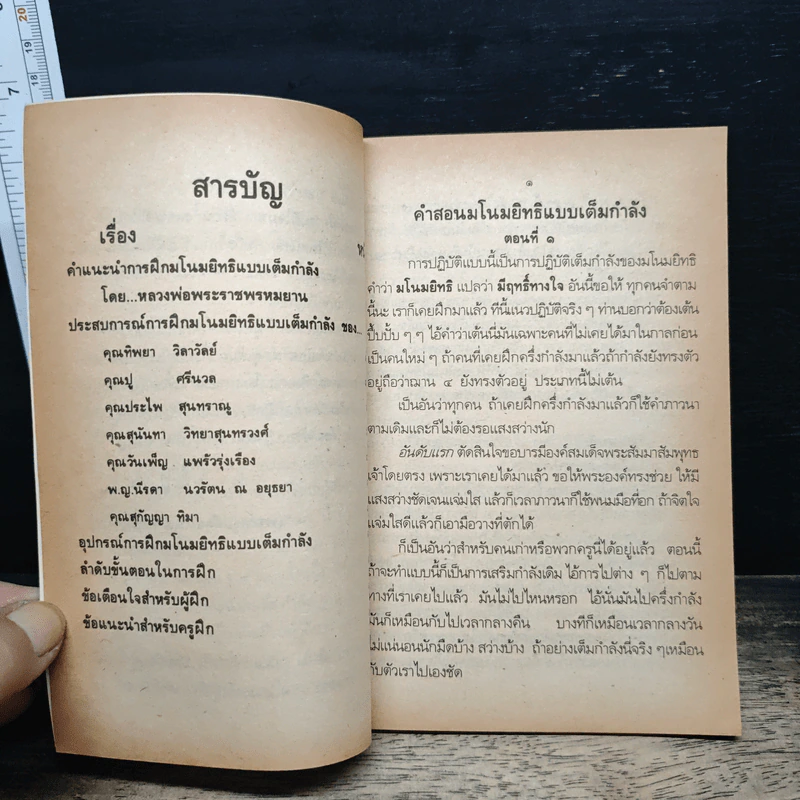 20
19
18
7
สารบัญ
เรื่อง
คำแนะนำการฝึกมโนมยิทธิแบบเต็มกำลัง
โดย...หลวงพ่อพระราชพรหมยาน
ประสบการณ์การฝึกมโนมยิทธิแบบเต็มกำลัง ของ...
คุณทิพยา วิลาวัลย์
คุณปู ศรีนวล
คุณประไพ สุนทราณู
คุณสุนันทา วิทยาสุนทรวงศ์
คุณวันเพ็ญ แพรัวรุ่งเรือง
พ.ญ.นีรดา นวรัตน ณ อยุธยา
คุณสุกัญญา ทิมา
อุปกรณ์การฝึกมโนมยิทธิแบบเต็มกำลัง
ลำดับขั้นตอนในการฝึก
ข้อเตือนใจสำหรับผู้ฝึก
ข้อแนะนำสำหรับครูฝึก
๑
คำสอนมโนมยิทธิแบบเต็มกำลัง
ตอนที่ ๑
การปฏิบัติแบบนี้เป็นการปฏิบัติเต็มกำลังของมโนมยิทธิ
คำว่า มโนมยิทธิ แปลว่า มีฤทธิ์ทางใจ อันนี้ขอให้ ทุกคนจำตาม
นี้นะ เราก็เคยฝึกมาแล้ว ทีนี้แนวปฏิบัติจริง ๆ ท่านบอกว่าต้องเต้น
ปึ๊บปั๊บ ๆ ๆ ไอ้คำว่าเต้นนี่มันเฉพาะคนที่ไม่เคยได้มาในกาลก่อน
เป็นคนใหม่ ๆ ถ้าคนที่เคยฝึกครึ่งกำลังมาแล้วถ้ากำลังยังทรงตัว
อยู่ถือว่าฌาน ๔ ยังทรงตัวอยู่ ประเภทนี้ไม่เต้น
เป็นอันว่าทุกคน ถ้าเคยฝึกครึ่งกำลังมาแล้วก็ใช้คำภาวนา
ตามเดิมและก็ไม่ต้องรอแสงสว่างนัก
อันดับแรก ตัดสินใจขอบารมีองค์สมเด็จพระสัมมาสัมพุทธ
เจ้าโดยตรง เพราะเราเคยได้มาแล้ว ขอให้พระองค์ทรงช่วย ให้มี
แสงสว่างชัดเจนแจ่มใส แล้วก็เวลาภาวนาก็ใช้พนมมือที่อก ถ้าจิตใจ
แจ่มใสดีแล้วก็เอามือวางที่ตักได้
ก็เป็นอันว่าสำหรับคนเก่าหรือพวกครูนี่ได้อยู่แล้ว ตอนนี้
ถ้าจะทำแบบนี้ก็เป็นการเสริมกำลังเดิม ไอ้การไปต่าง ๆ ก็ไปตาม
ทางที่เราเคยไปแล้ว มันไม่ไปไหนหรอก ไอ้นั่นมันไปครึ่งกำลัง
มันก็เหมือนกับไปเวลากลางคืน บางทีก็เหมือนเวลากลางวัน
ไม่แน่นอนนักมืดบ้าง สว่างบ้าง ถ้าอย่างเต็มกำลังนี่จริง ๆเหมือน
กับตัวเราไปเองชัด